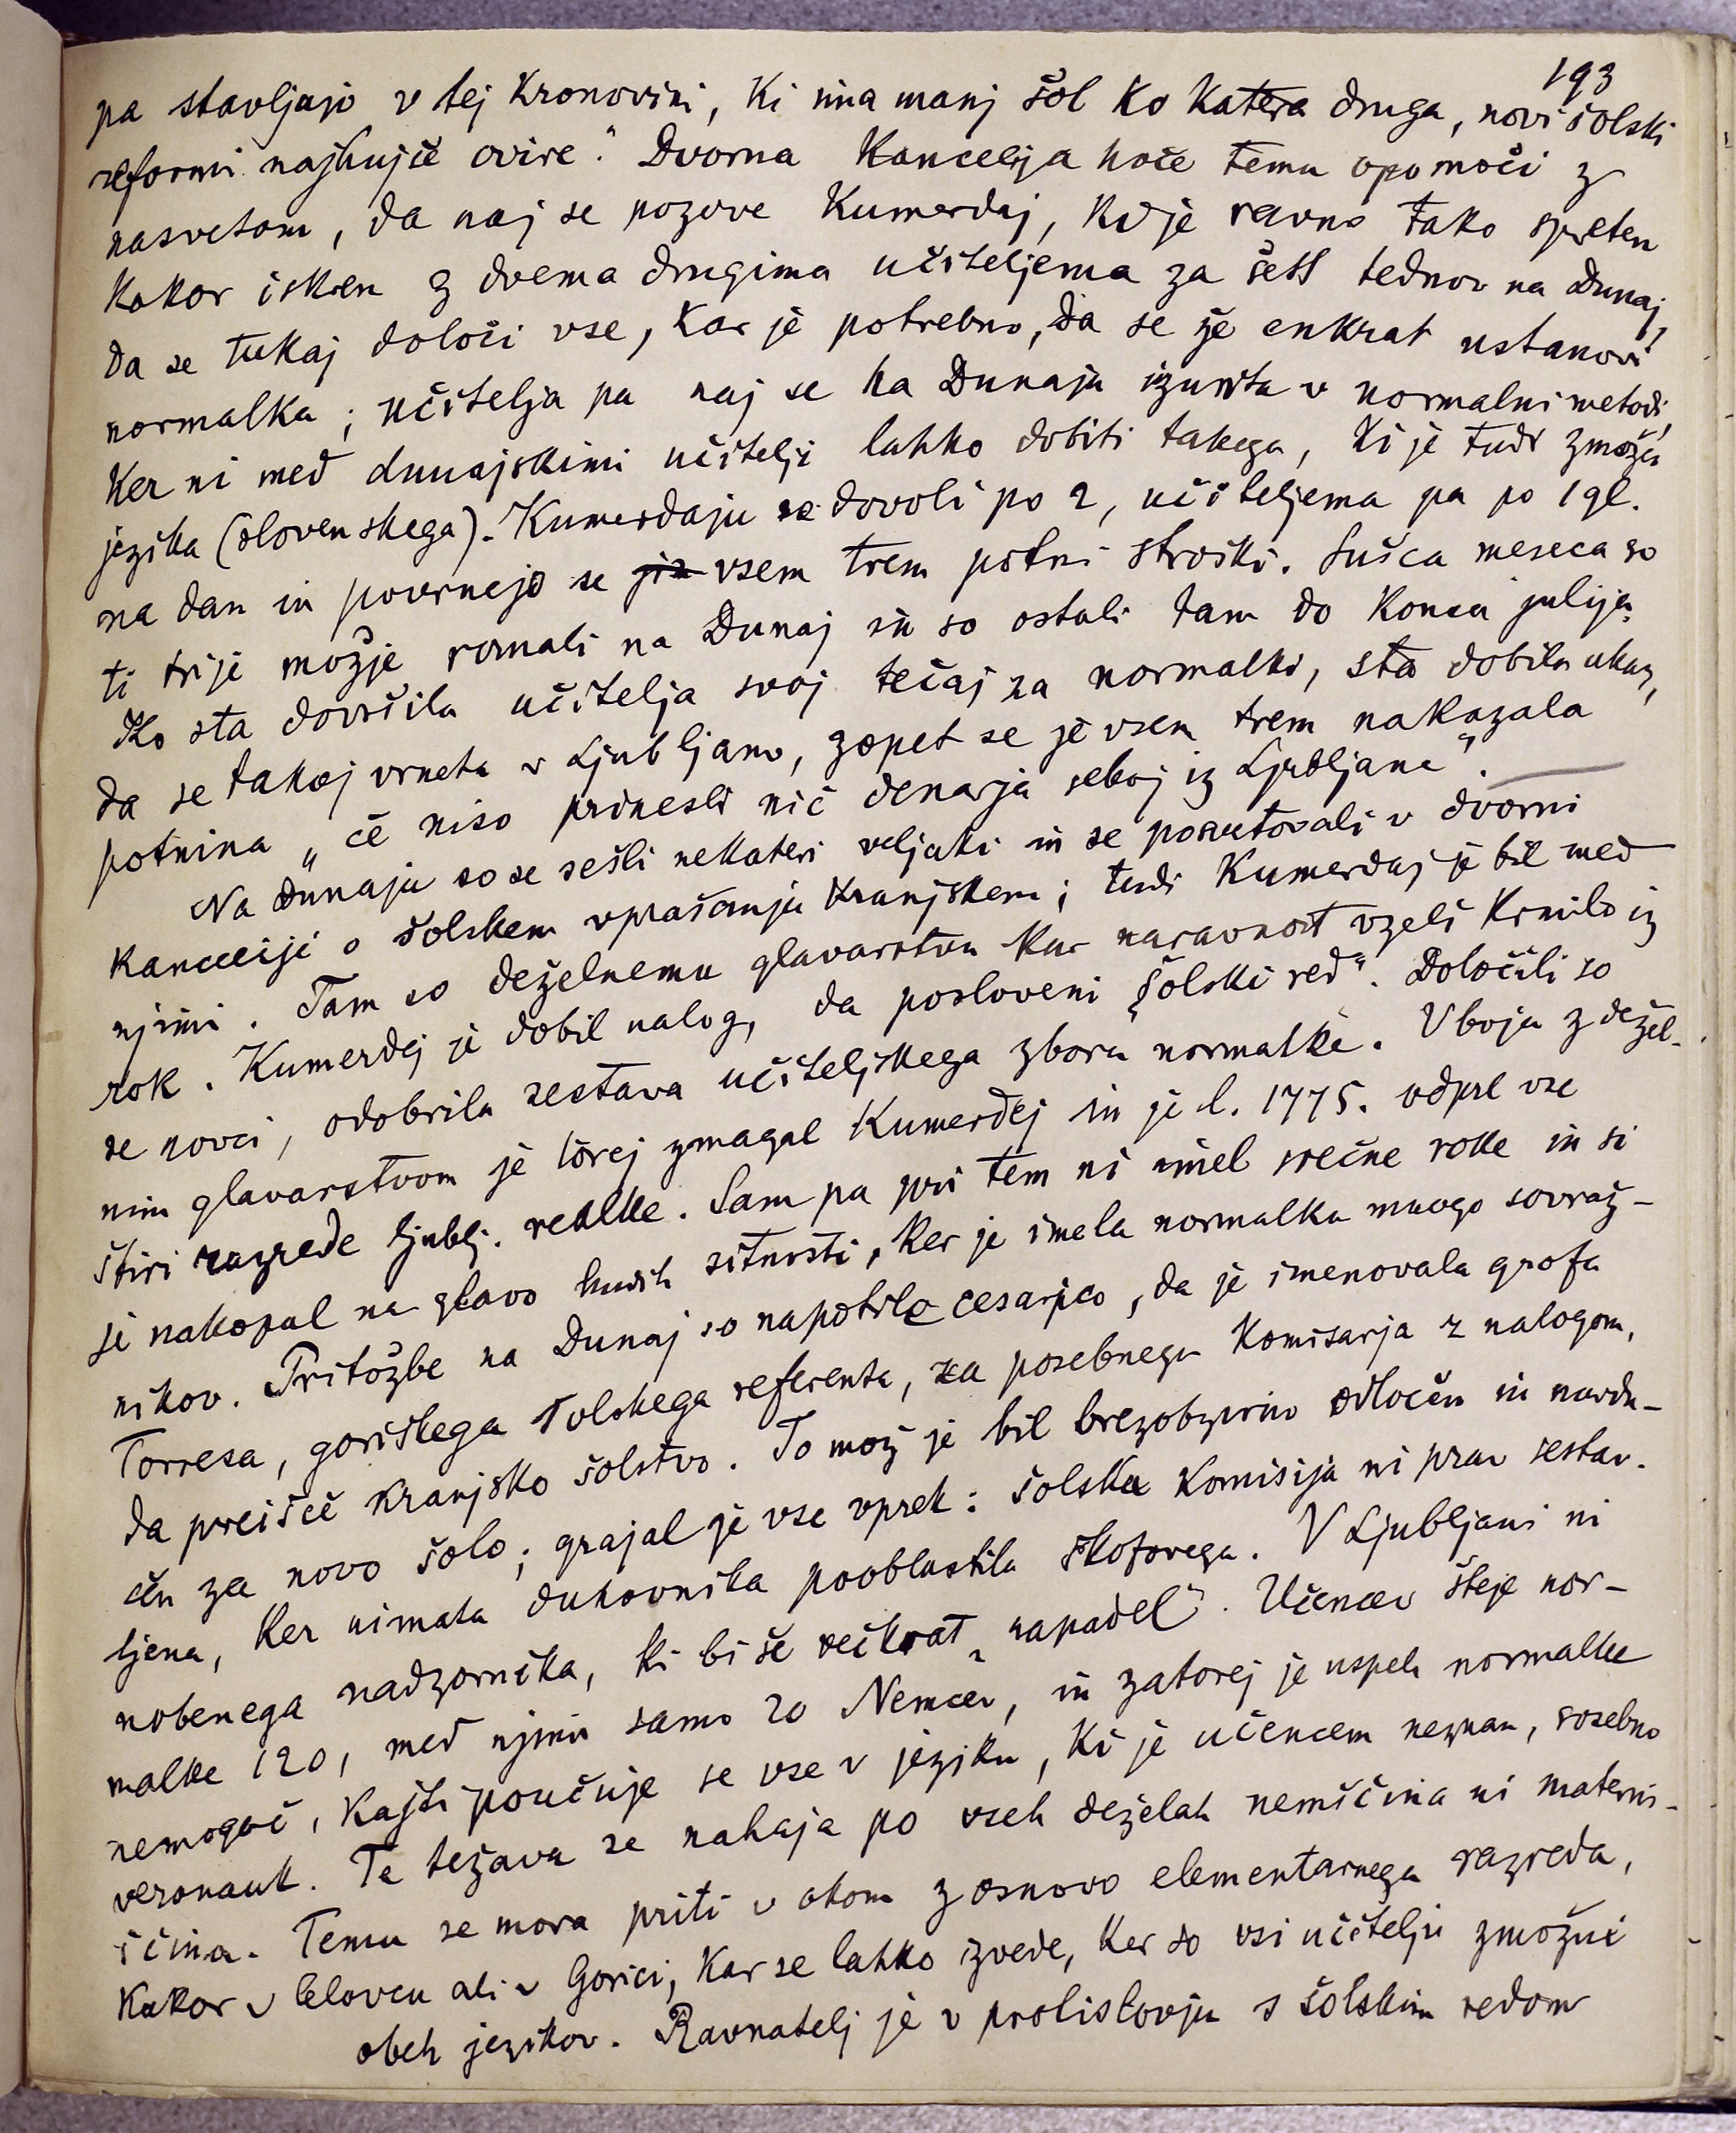 193
pa stavljajo v tej kronovini, ki ima manj šol ko katera druga, novi šolski
reformi najhujše ovire." Dvorna kancelija hoče temu opomoči z
nasvetom, da naj se pozove Kumerdej, ki je ravno tako spreten
kakor iskren z dvema drugima učiteljema za šest tednov na Dunaj,
da se tukaj določi vse, kar je potrebno, da se že enkrat ustanovi
normalka; učitelja pa naj se na Dunaju izurita v normalni metodi,
ker ni med dunajskimi učitelji lahko dobiti takega, ki je tudi zmožen
jezika (slovenskega). Kumerdaju se dovoli po 2, učiteljema pa po 1 gl.
na dan in povrnejo se vsem trem potni stroški. Sušca meseca so
ti trije možje romali na Dunaj in so ostali tam do konca julija.
Ko sta dovršila učitelja svoj tečaj za normalko, sta dobila ukaz,
da se takoj vrneta v Ljubljano, zopet se je vsem trem nakazala
potnina „če niso prinesli nič denarja seboj iz Ljubljane".
Na Dunaju so se sešli nekateri veljaki in se posvetovali v dvorni
kanceliji o šolskem vprašanju kranjskem; tudi Kumerdaj je bil med
njimi. Tam so deželnemu glavarstvu kar naravnost vzeli krmilo iz
rok. Kumerdej je dobil nalog, da posloveni „šolski red". Določili so
se novci, odobrila sestava učiteljskega zbora normalke. V boju z dežel-
nim glavarstvom je torej zmagal Kumerdej in je l. 1775. odprl vse
štiri razrede ljublj. realke. Sam pa pri tem ni imel srečne roke in si
je nakopal na glavo hudih sitnosti, ker je imela normalka mnogo sovraž-
nikov. Pritožbe na Dunaj so napotile cesarico, da je imenovala grofa
Torresa, goriškega šolskega referenta, za posebnega komisarja z nalogom,
da preišče kranjsko šolstvo. To mož je bil brezobzirno odločen in navdu-
šen za novo šolo; grajal je vse vprek: šolska komisija ni prav sestav-
ljena, ker nimata duhovnika pooblastila škofovega. V Ljubljani ni
nobenega nadzornika, ki bi še večkrat „napadel". Učencev šteje nor-
malke 120, med njimi samo 20 Nemcev, in zatorej je uspeh normalke
nemogoč, kajti poučuje se vse v jeziku, ki je učencem neznan, osebno
veronauk. Te težava se nahaja po vseh deželah nemščina ni materin-
ščina. Temu se mora priti v okom z osnovo elementarnega razreda,
kakor v Celovcu ali v Gorici, kar se lahko izvede, ker so vsi učitelji zmožni
obeh jezikov. Ravnatelj je v protislovju s šolskim redom